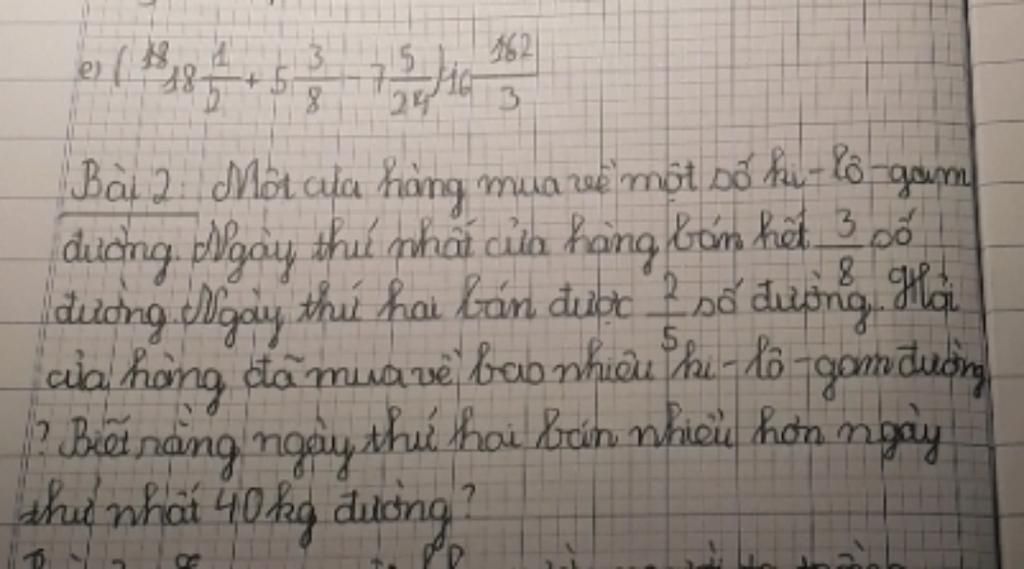 e) ( 18 18 1/2 + 5 3/8 - 7 5/24 ) : 16 162/3
Bài 2: Một cửa hàng mua về một số ki-lô-gam
đường. Ngày thứ nhất cửa hàng bán hết 3/8 số
đường. Ngày thứ hai bán được 2/5 số đường. Hỏi
cửa hàng đã mua về bao nhiêu ki-lô-gam đường
? Biết rằng ngày thứ hai bán nhiều hơn ngày
thứ nhất 40kg đường?